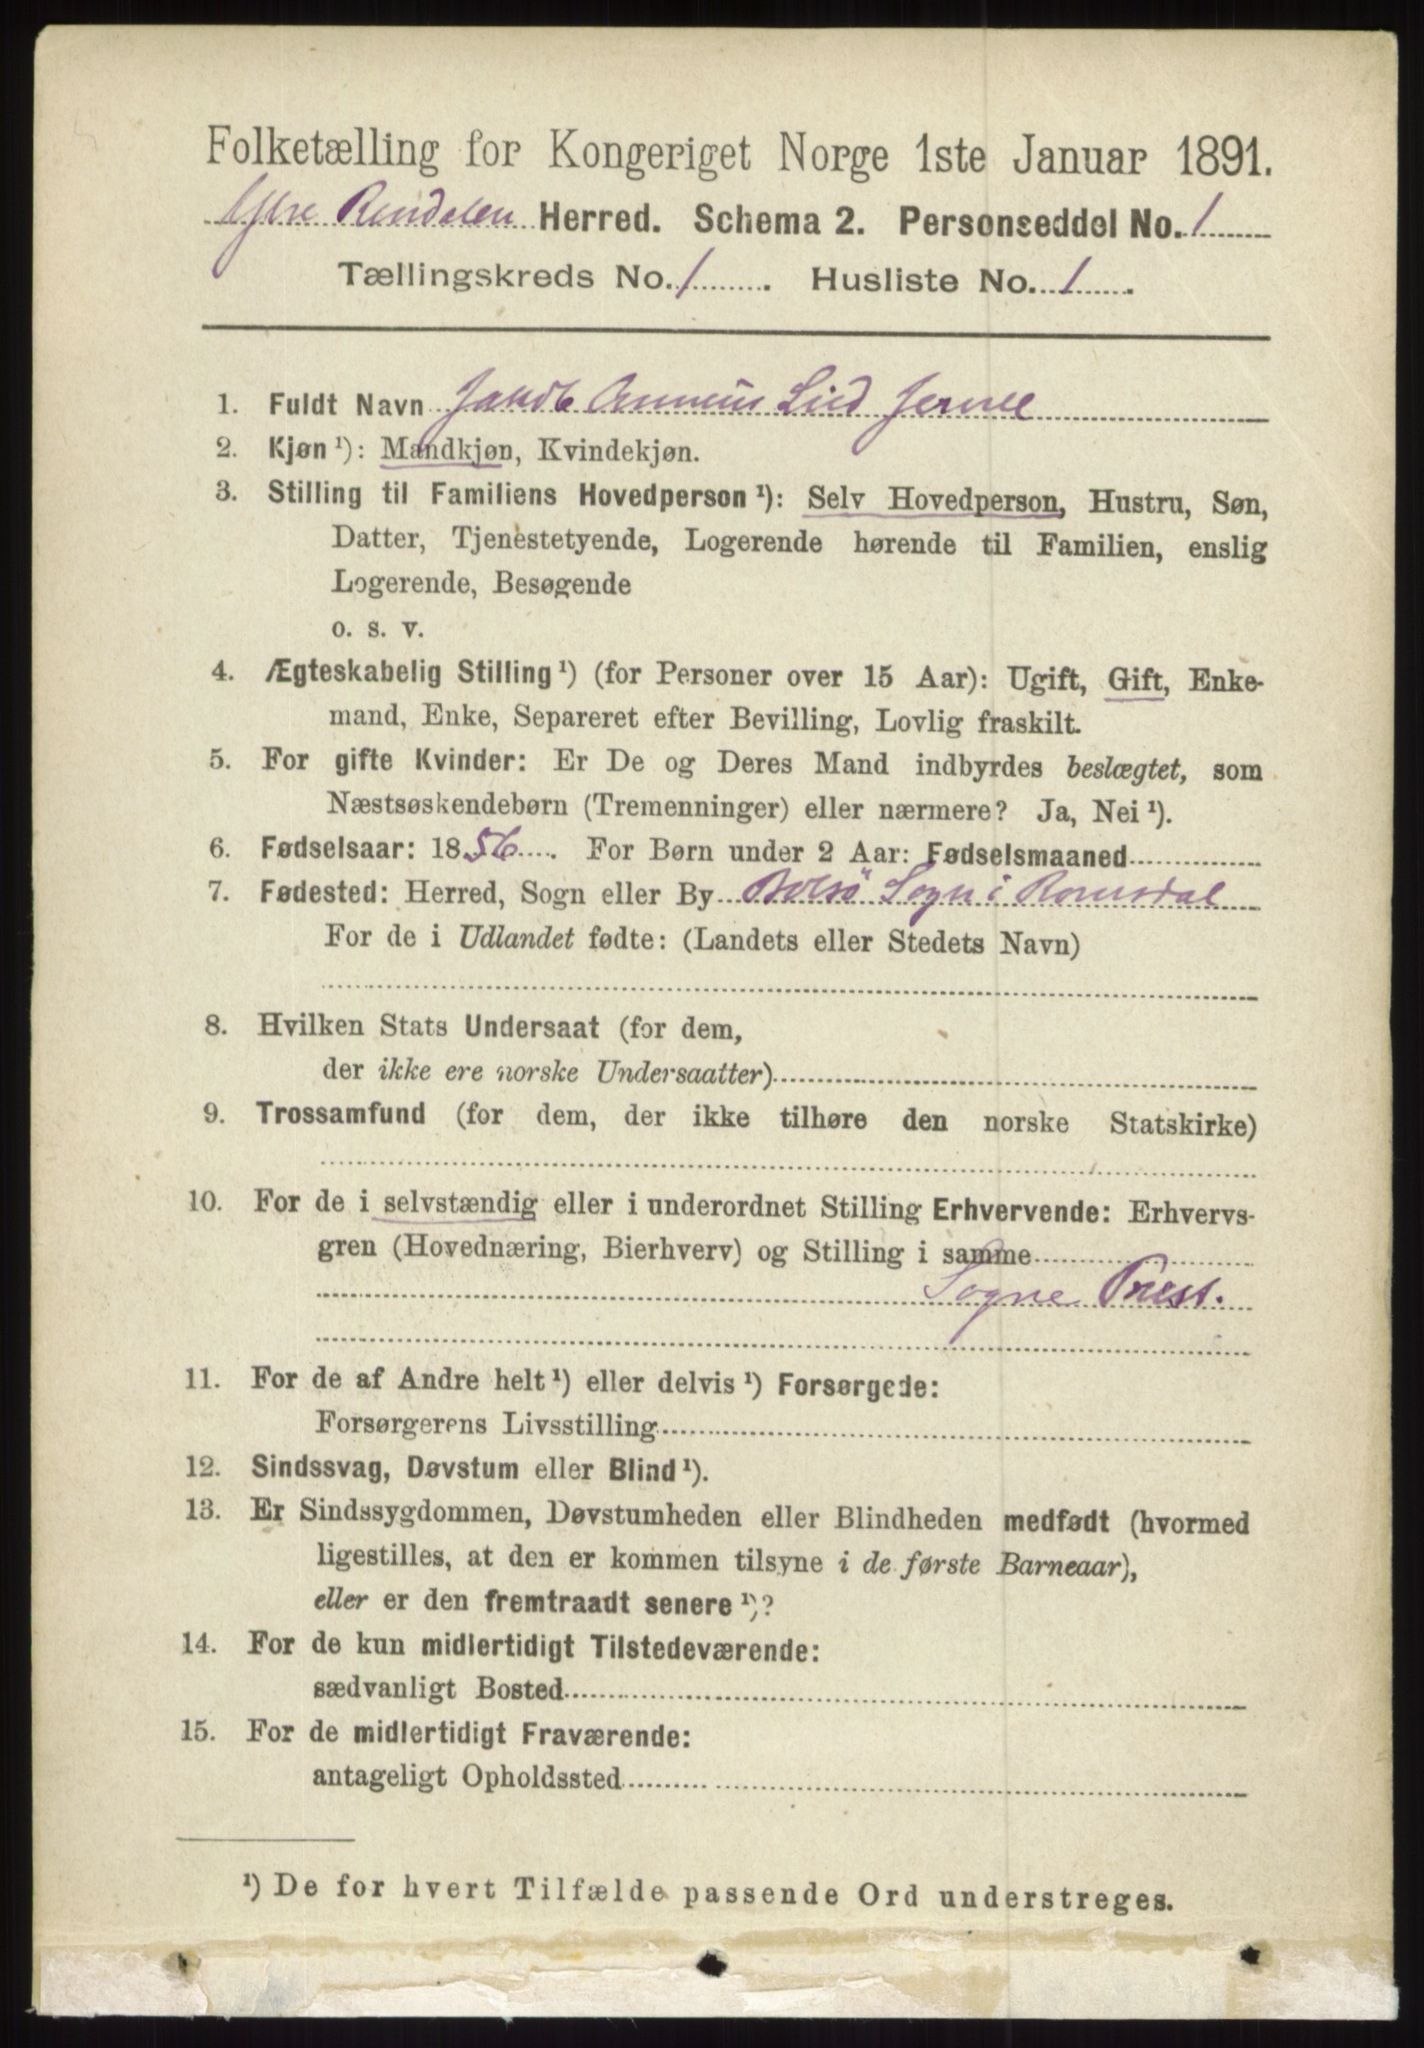 Folketælling for Kongeriget Norge 1ste Januar 1891.
Ytre Rendalen Herred. Schema 2. Personseddel No. 1
Tællingskreds No. 1. Husliste No. 1.
1. Fuldt Navn Jakob Lied Jervell
2. Kjøn ¹): Mandkjøn, Kvindekjøn.
3. Stilling til Familiens Hovedperson ¹): Selv Hovedperson, Hustru, Søn,
Datter, Tjenestetyende, Logerende hørende til Familien, enslig
Logerende, Besøgende
o. s. v.
4. Ægteskabelig Stilling ¹) (for Personer over 15 Aar): Ugift, Gift, Enke-
mand, Enke, Separeret efter Bevilling, Lovlig fraskilt.
5. For gifte Kvinder: Er De og Deres Mand indbyrdes beslægtet, som
Næstsøskendebørn (Tremenninger) eller nærmere? Ja, Nei ¹).
6. Fødselsaar: 1856. For Børn under 2 Aar: Fødselsmaaned
7. Fødested: Herred, Sogn eller By Bolsö Sogn i Romsdal
For de i Udlandet fødte: (Landets eller Stedets Navn)
8. Hvilken Stats Undersaat (for dem,
der ikke ere norske Undersaatter)
9. Trossamfund (for dem, der ikke tilhøre den norske Statskirke)
10. For de i selvstændig eller i underordnet Stilling Erhvervende: Erhvervs-
gren (Hovednæring, Bierhverv) og Stilling i samme
Sogne Præst.
11. For de af Andre helt ¹) eller delvis ¹) Forsørgede:
Forsørgerens Livsstilling
12. Sindssvag, Døvstum eller Blind ¹).
13. Er Sindssygdommen, Døvstumheden eller Blindheden medfødt (hvormed
ligestilles, at den er kommen tilsyne i de første Barneaar),
eller er den fremtraadt senere ¹)?
14. For de kun midlertidigt Tilstedeværende:
sædvanligt Bosted
15. For de midlertidigt Fraværende:
antageligt Opholdssted
¹) De for hvert Tilfælde passende Ord understreges.